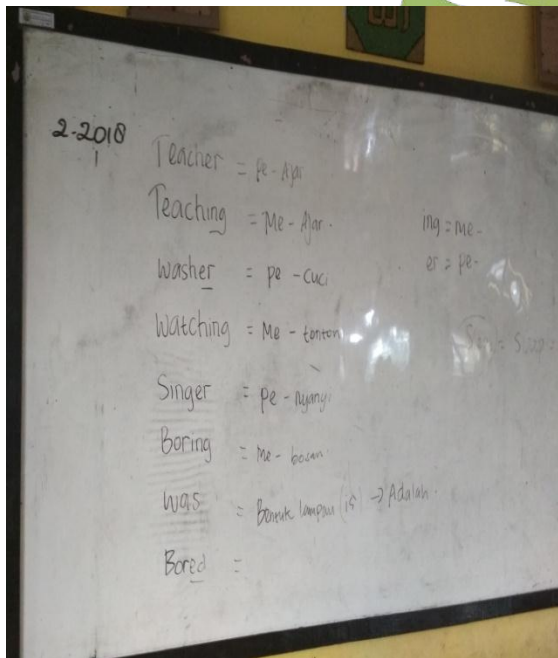 2-2018
Teacher = Pe - Ajar
Teaching = Me - Ajar.
ing = me -
er = pe -
Washer = pe - cuci
Watching = Me - tonton
Singer = pe - nyanyi
Boring = Me - bosan
Was = Bentuk lampau (is) → Adalah.
Bored =